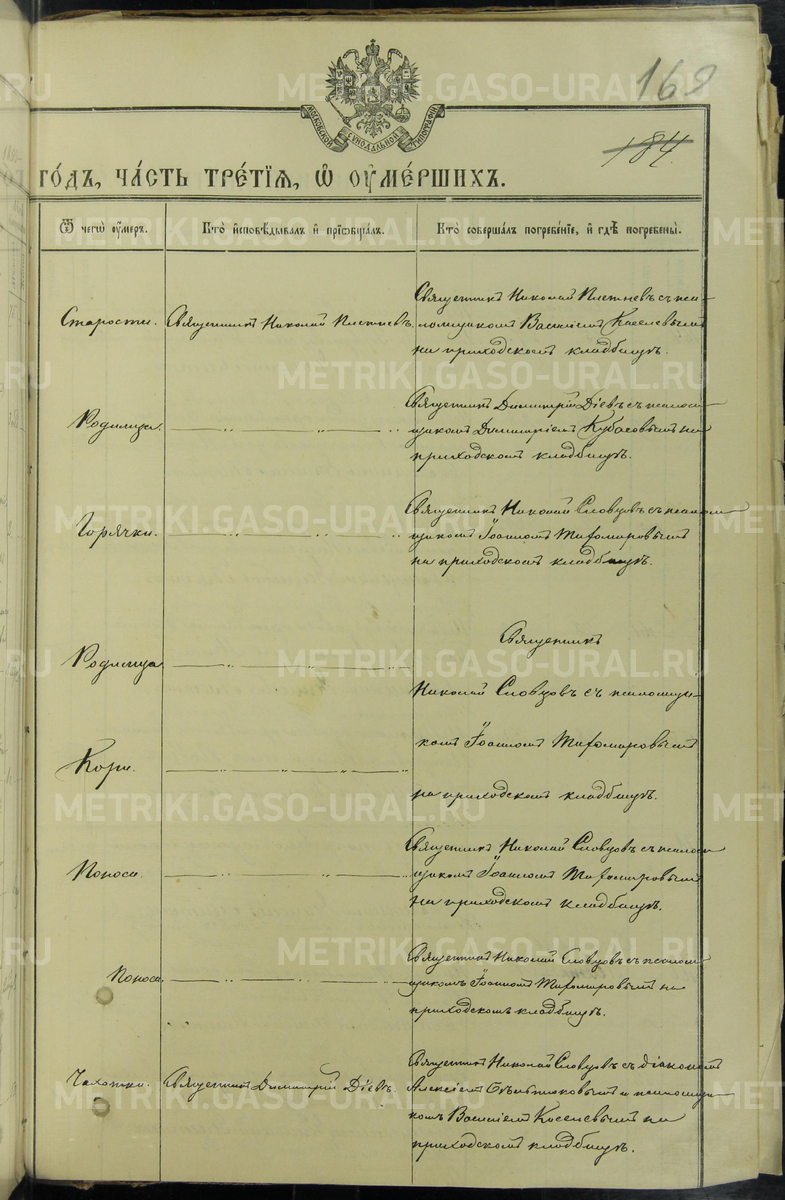 168
184.
МОСКОВСКОЙ СѴНОДАЛЬНОЙ ТИПОГРАФІИ
ГО́ДЪ, ЧА́СТЬ ТРЕ́ТІЯ, Ѡ҆ ОУ҆МЕ́РШИХЪ.
Ѿ чегѡ̀ оу҆́меръ.
Кто̀ и҆сповѣ́дывалъ и҆ прїѡбща́лъ.
Кто̀ соверша́лъ погребе́нїе, и҆ гдѣ̀ погребены̀.
Старости.
Священникъ Николай Плетневъ.
Священникъ Николай Плетневъ съ пса-
ломщикомъ Василіемъ Киселевымъ
на приходскомъ кладбищѣ.
Родимца.
Священникъ Димитрій Діевъ съ псалом-
щикомъ Димитріемъ Кубасовымъ на
приходскомъ кладбищѣ.
Горячки.
Священникъ Николай Словцовъ съ псалом-
щикомъ Іоанномъ Тихомировымъ
на приходскомъ кладбищѣ.
Родимца
Священникъ
Николай Словцовъ съ псаломщи-
Кори.
комъ Іоанномъ Тихомировымъ
на приходскомъ кладбищѣ.
Поноса.
Священникъ Николай Словцовъ съ псалом-
щикомъ Іоанномъ Тихомировымъ
на приходскомъ кладбищѣ.
Поноса.
Священникъ Николай Словцовъ съ псалом-
щикомъ Іоанномъ Тихомировымъ на
приходскомъ кладбищѣ.
Чахотки.
Священникъ Димитрій Діевъ.
Священникъ Николай Словцовъ съ діакономъ
Алексіемъ и псаломщи-
комъ Василіемъ Киселевымъ на
приходскомъ кладбищѣ.
METRIKI.GASO-URAL.RU